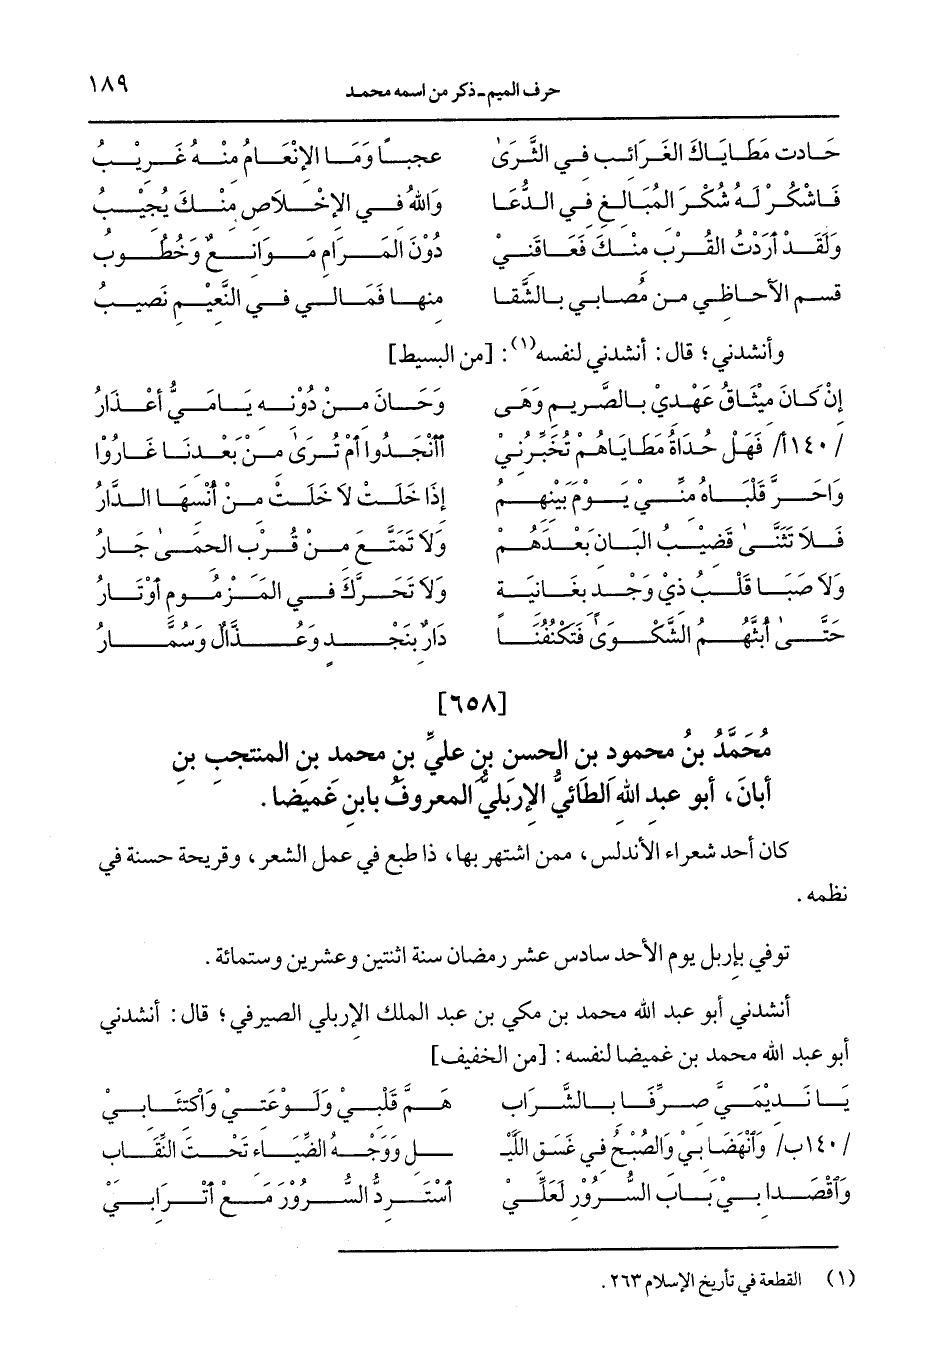 حرف الميم ـ ذكر من اسمه محمد ١٨٩
حَادت مَطَايَاكَ الغَرَائب في الثَّرَىٰ عجباً وَمَا الإنْعَامُ منْهُ غَريْبُ
فَاشْكُرْ لَهُ شُكْرَ المُبَالغ في الدُّعَا وَاللهُ في الإخْلَاص منْكَ يُجيْبُ
وَلَقَدْ أرَدْتُ القُرْبَ منْكَ فَعَاقَنيْ دُوْنَ المَرَام مَوَانعٌ وَخُطُوبُ
قسم الأحَاظي من مُصَابي بالشَّقا منهَا فَمَالي في النَّعيْم نَصيبُ
وأنشدني؛ قال: أنشدني لنفسه(١): [من البسيط]
إنْ كَانَ ميْثَاقُ عَهْديْ بالصَّريم وَهَى وَحَانَ منْ دُوْنه يَا مَيُّ أعْذَارُ
/١٤٠أ/ فَهَلْ حُدَاةُ مَطَايَاهُمْ تُخَبِّرُنيْ أأنْجَدُوا أمْ تُرَىٰ منْ بَعْدنَا غَارُوْا
وَاحَرَّ قَلْبَاهُ منِّيْ يَوْمَ بَيْنهمُ إذَا خَلَتْ لاَ خَلَتْ منْ أُنْسهَا الدَّارُ
فَلاَ تَثَنَّىٰ قَضيْبُ البَان بَعْدَهُمْ وَلاَ تَمَتَّعَ منْ قُرْب الحمَىٰ جَارُ
وَلاَ صَبَا قَلْبُ ذيْ وَجْد بغَانيَة وَلاَ تَحَرَّكَ في المَزْمُوم أوْتَارُ
حَتَّىٰ أبُثَّهُمُ الشَّكْوَىٰ فَتَكْنُفُنَا دَارٌ بنَجْد وَعُذَّالٌ وَسُمَّارُ
[٦٥٨]
مُحَمَّدُ بنُ محمود بن الحسن بن عليِّ بن محمد بن المنتجب بن
أبانَ، أبو عبد الله الطَائيُّ الإربليُّ المعروفُ بابن غَميضا.
كان أحد شعراء الأندلس، ممن اشتهر بها، ذا طبع في عمل الشعر، وقريحة حسنة في
نظمه.
توفي بإربل يوم الأحد سادس عشر رمضان سنة اثنتين وعشرين وستمائة.
أنشدني أبو عبد الله محمد بن مكي بن عبد الملك الإربلي الصيرفي؛ قال: أنشدني
أبو عبد الله محمد بن غميضا لنفسه: [من الخفيف]
يَا نَديْمَيَّ صرِّفَا بالشَّرَاب هَمَّ قَلْبيْ وَلَوْعَتيْ وَاكْتئَابيْ
/١٤٠ب/ وَانْهَضَا بيْ وَالصُّبْحُ في غَسَق اللَّيْـ ـل وَوَجْهُ الضِّيَاء تَحْتَ النِّقَاب
وَاقْصُدَا بيْ بَابَ السُّرُوْر لَعَلِّيْ أسْتَردُّ السُّرُوْرَ مَعْ أتْرَابيْ
(١) القطعة في تأريخ الإسلام ٢٦٣.